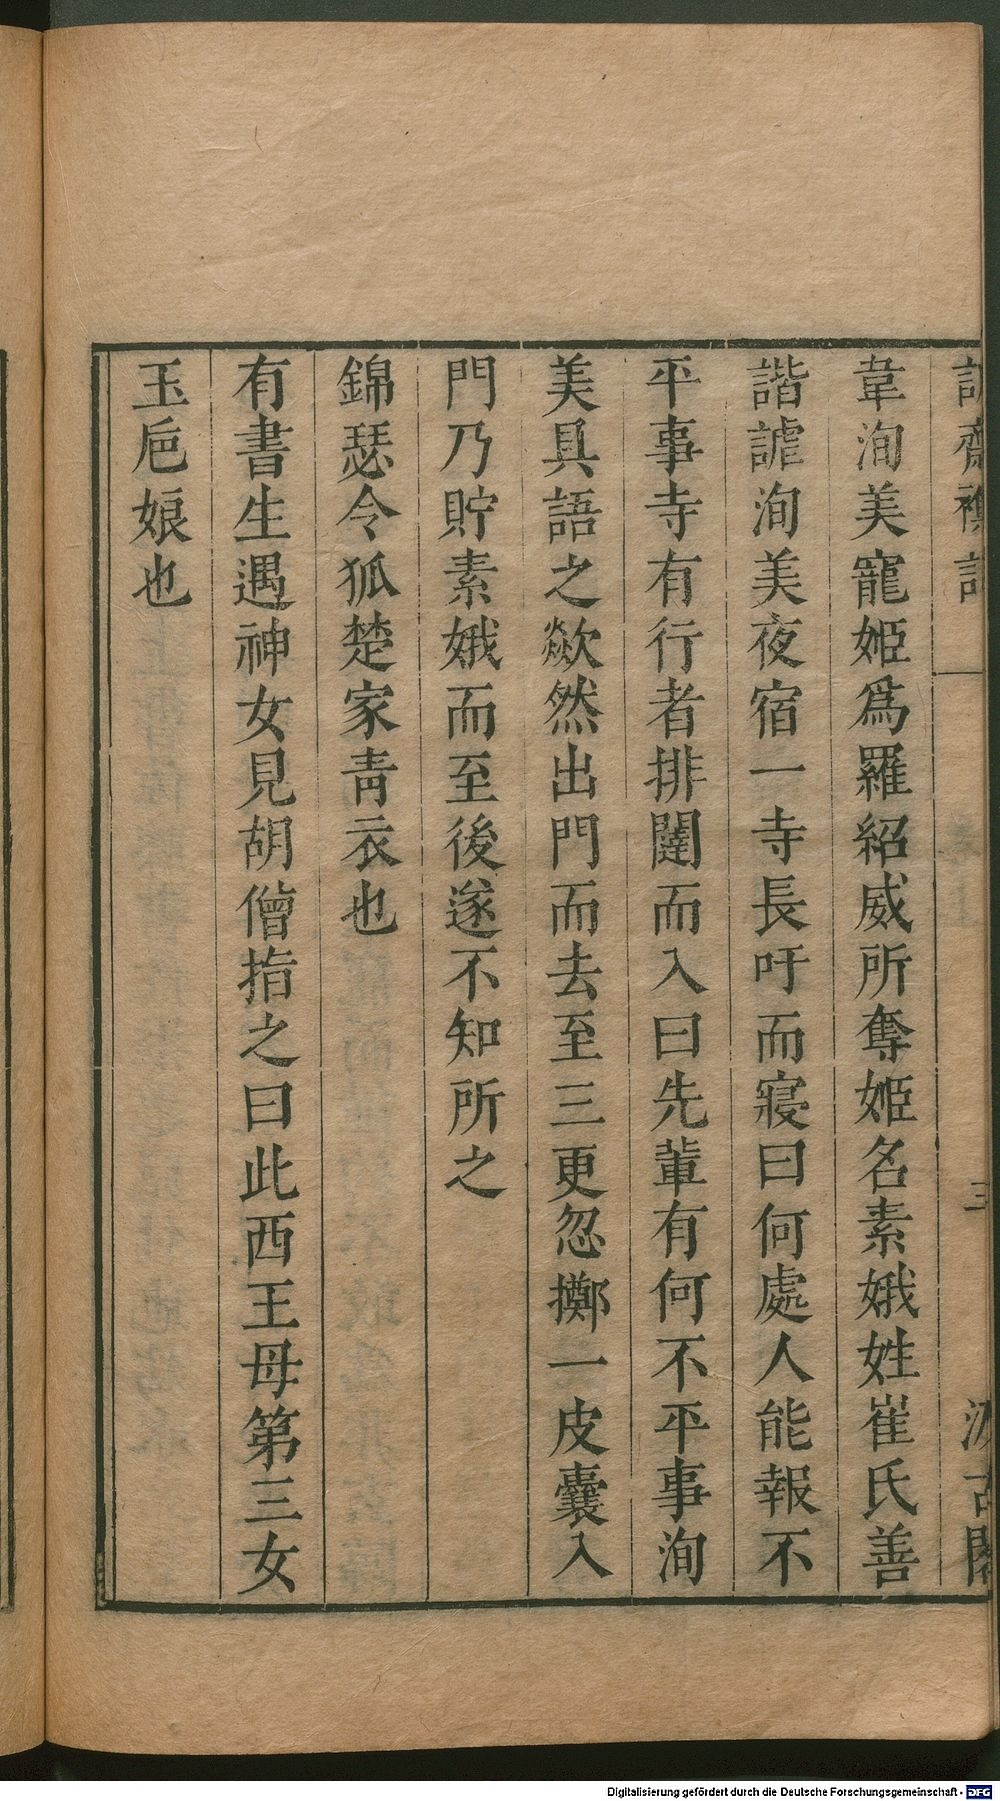 韋洵美寵姬爲羅紹威所奪姬名素娥姓崔氏善
諧謔洵美夜宿一寺長吁而寢曰何處人能報不
平事寺有行者排闥而入曰先輩有何不平事洵
美具語之歘然出門而去至三更忽擲一皮囊入
門乃貯素娥而至後遂不知所之
錦瑟令狐楚家青衣也
有書生遇神女見胡僧指之曰此西王母第三女
玉巵娘也
三
Digitalisierung gefördert durch die Deutsche Forschungsgemeinschaft - DFG